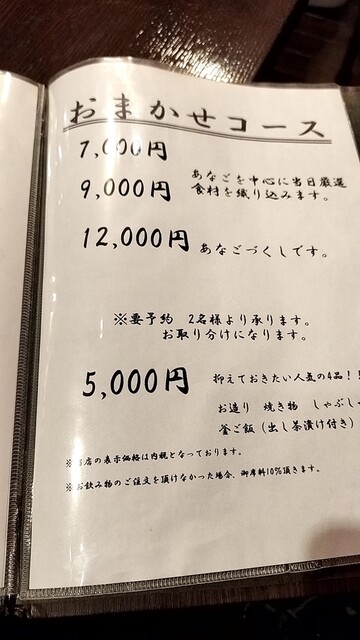 おまかせコース
7,000円
9,000円
あなごを中心に当日厳選
食材を織り込みます。
12,000円 あなごづくしです。
※要予約 2名様より承ります。
お取り分けになります。
5,000円 抑えておきたい人気の4品!!
お造り 焼き物 しゃぶし
釜ご飯(出し茶漬け付き)
※当店の表示価格は内税となっております。
※お飲み物のご注文を頂けなかった場合、御席料10%頂きます。